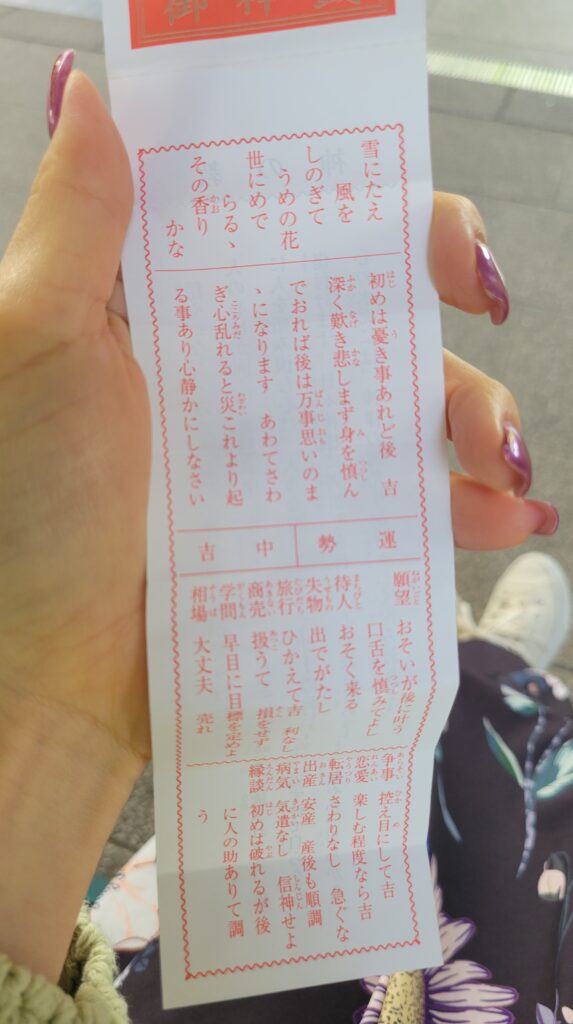 御神籤
雪にたえ
風を
しのぎて
うめの花
世にめで
らるゝ
その香り
かな
初めは憂き事あれど後 吉
深く歎き悲しまず身を慎ん
でおれば後は万事思いのま
ゝになります あわてさわ
ぎ心乱れると災これより起
る事あり心静かにしなさい
運勢 中吉
願望 おそいが後に叶う
口舌を慎みてよし
待人 おそく来る
失物 出でがたし
旅行 ひかえて吉
商売 扱うて利なし 損をせず
学問 早目に目標を定めよ
相場 大丈夫 売れ
争事 控え目にして吉
恋愛 楽しむ程度なら吉
転居 さわりなし 急ぐな
出産 安産 産後も順調
病気 気遣なし 信神せよ
縁談 初めは破れるが後
に人の助ありて調
う